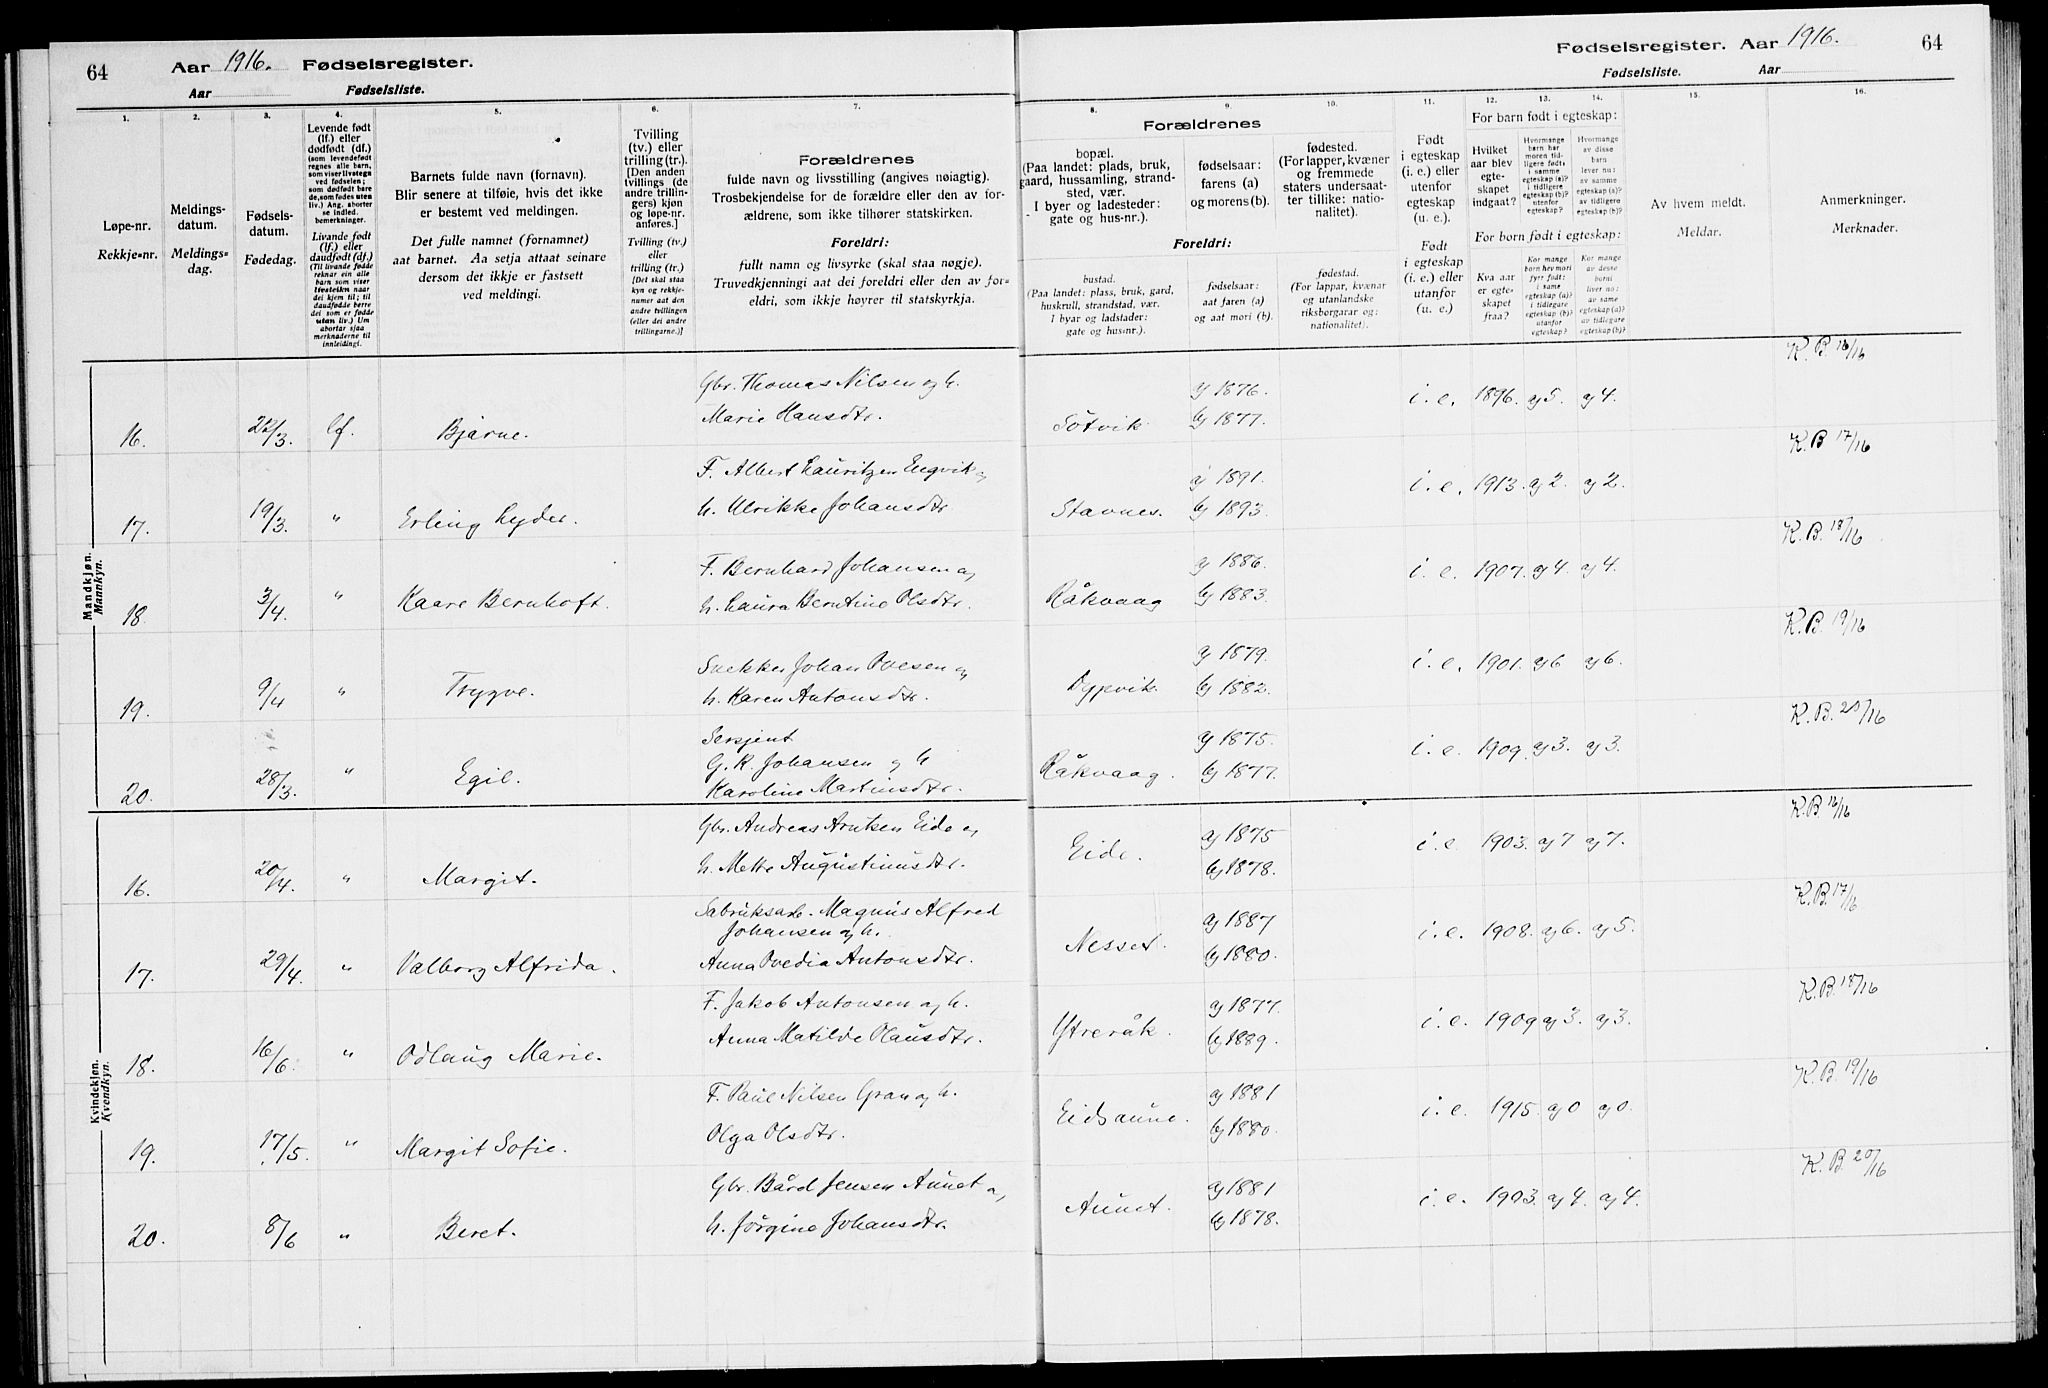 64 Aar 1916. Fødselsregister.
Aar Fødselsliste.
1. 2. 3. 4. 5. 6. 7.
Løpe-nr.
Rekkje=nr.
Meldings-
datum.
Meldings=
dag.
Fødsels-
datum.
Fødedag.
Levende født
(lf.) eller
dødfødt (df.)
(som levendefødt
regnes alle barn,
som viser livstegn
ved fødselen;
som dødfødt bare
de, som fødes uten
liv.) Ang. aborter
se indled.
bemerkninger.
Livande født
(lf.) eller
daudfødt (df.)
(Til livande fødde
reknar ein alle
barn som viser
livsteikn naar
dei kjem til; til
daudfødde berre
dei som er fødde
utan liv.) Um
abortar sjaa
merknaderne til
innleidingi.
Barnets fulde navn (fornavn).
Blir senere at tilføie, hvis det ikke
er bestemt ved meldingen.
Det fulle namnet (fornamnet)
aat barnet. Aa setja attaat seinare
dersom det ikkje er fastsett
ved meldingi.
Tvilling
(tv.) eller
trilling (tr.).
[Den anden
tvillings (de
andre trillin-
gers) kjøn
og løpe-nr.
anføres.]
Tvilling (tv.)
eller
trilling (tr.)
[Det skal staa
kyn og rekkje-
numer aat den
andre tvillingen
(eller dei andre
trillingarne.)]
Forældrenes
fulde navn og livsstilling (angives nøiagtig).
Trosbekjendelse for de forældre eller den av for-
ældrene, som ikke tilhører statskirken.
Foreldri:
fullt namn og livsyrke (skal staa nøgje).
Truvedkjenningi aat dei foreldri eller den av for-
eldri, som ikkje høyrer til statskyrkja.
Mandkjøn.
Mannkyn.
16. 22/3. lf. Bjarne.
Gbr. Thomas Nilsen og h.
Marie Hansdtr.
17. 19/3. " Erling Lyder.
F. Albert Lauritzen Engvik og
h. Ulrikke Johansdtr.
18. 3/4. " Kaare Bernhoft.
F. Bernhard Johansen og
h. Laura Berntine Olsdtr.
19. 9/4 " Trygve.
Snekker Johan Ovesen og
h. Karen Antonsdtr.
20. 28/3. " Egil.
Sersjent
G. K. Johansen og h
Karoline Martinsdtr.
Kvindekjøn.
Kvendkyn.
16. 20/4. " Margit.
Gbr. Andreas Arntsen Eide og
h. Mette Augustinusdtr.
17. 29/4. " Valborg Alfrida.
Fabriksarb. Magnus Alfred
Johansen og h.
Anna Ovedia Antonsdtr.
18. 16/6. " Odlaug Marie.
F. Jakob Antonsen og h.
Anna Matilde Olausdtr.
19. 17/5. " Margit Sofie.
F. Paul Nilsen Gran og h.
Olga Olsdtr.
20. 8/6 " Beret.
Gbr. Bård Jensen Aunet og
h. Jørgine Johansdtr.
Fødselsregister. Aar 1916. 64
Fødselsliste. Aar
8. 9. 10. 11. 12. 13. 14. 15. 16.
Forældrenes
bopæl.
(Paa landet: plads, bruk,
gaard, hussamling, strand-
sted, vær.
I byer og ladesteder:
gate og hus-nr.).
fødselsaar:
farens (a)
og morens (b).
fødested.
(For lapper, kvæner
og fremmede
staters undersaat-
ter tillike: natio-
nalitet).
Foreldri:
bustad.
(Paa landet: plass, bruk, gard,
huskrull, strandstad, vær.
I byar og ladstader:
gate og hus=nr.).
fødselsaar:
aat faren (a)
og aat mori (b).
fødestad.
(For lappar, kvænar
og utanlandske
riksborgarar og:
nationalitet).
Født
i egteskap
(i. e.) eller
utenfor
egteskap
(u. e.).
Født
i egteskap
(i. e.) eller
utanfor
egteskap
(u. e.)
For barn født i egteskap:
Hvilket
aar blev
egte-
skapet
indgaat?
Hvormange
barn har
moren tid-
ligere født:
i samme
egteskap (a)?
i tidligere
egteskap (b)?
utenfor
egteskap?
Hvormange
av disse
barn
lever nu:
av samme
egteskap (a)?
av tidligere
egteskap (b)?
For born født i egteskap:
Kva aar
er egte-
skapet
fraa?
Kor mange
born hev mori
fyrr født:
i same
egteskap (a)?
i tidlegare
egteskap (b)?
utanfor
egteskap?
Kor mange
av desse
borni
liver no:
av same
egteskap (a)?
av tidlegare
egteskap (b)?
Av hvem meldt.
Meldar.
Anmerkninger.
Merknader.
K. B. 16/16
Søtvik a) 1876. b) 1877. i. e. 1896. a) 5. a) 4.
K. B 17/16
Stavnes. a) 1891. b) 1893. i. e. 1913. a) 2. a) 2.
K. B. 18/16
Råkvaag a) 1886. b) 1883. i. e. 1907. a) 4. a) 4.
K. B. 19/16
Dypvik a) 1879. b) 1882. i. e. 1901. a) 6 a) 6.
K. B. 20/16
Råkvaag. a) 1875. b) 1877. i. e. 1909. a) 3. a) 3.
K. B. 16/16
Eide. a) 1875 b) 1878. i. e. 1903. a) 7 a) 7.
K. B. 17/16
Nesset. a) 1887 b) 1880. i. e. 1908. a) 6. a) 5.
K. B. 18/16
Ytreråk. a) 1877. b) 1889. i. e. 1909 a) 3. a) 3.
K. B. 19/16
Eidsaune. a) 1881 b) 1880. i. e. 1915. a) 0 a) 0.
K. B. 20/16
Aunet. a) 1881 b) 1878. i. e. 1903. a) 4. a) 4.